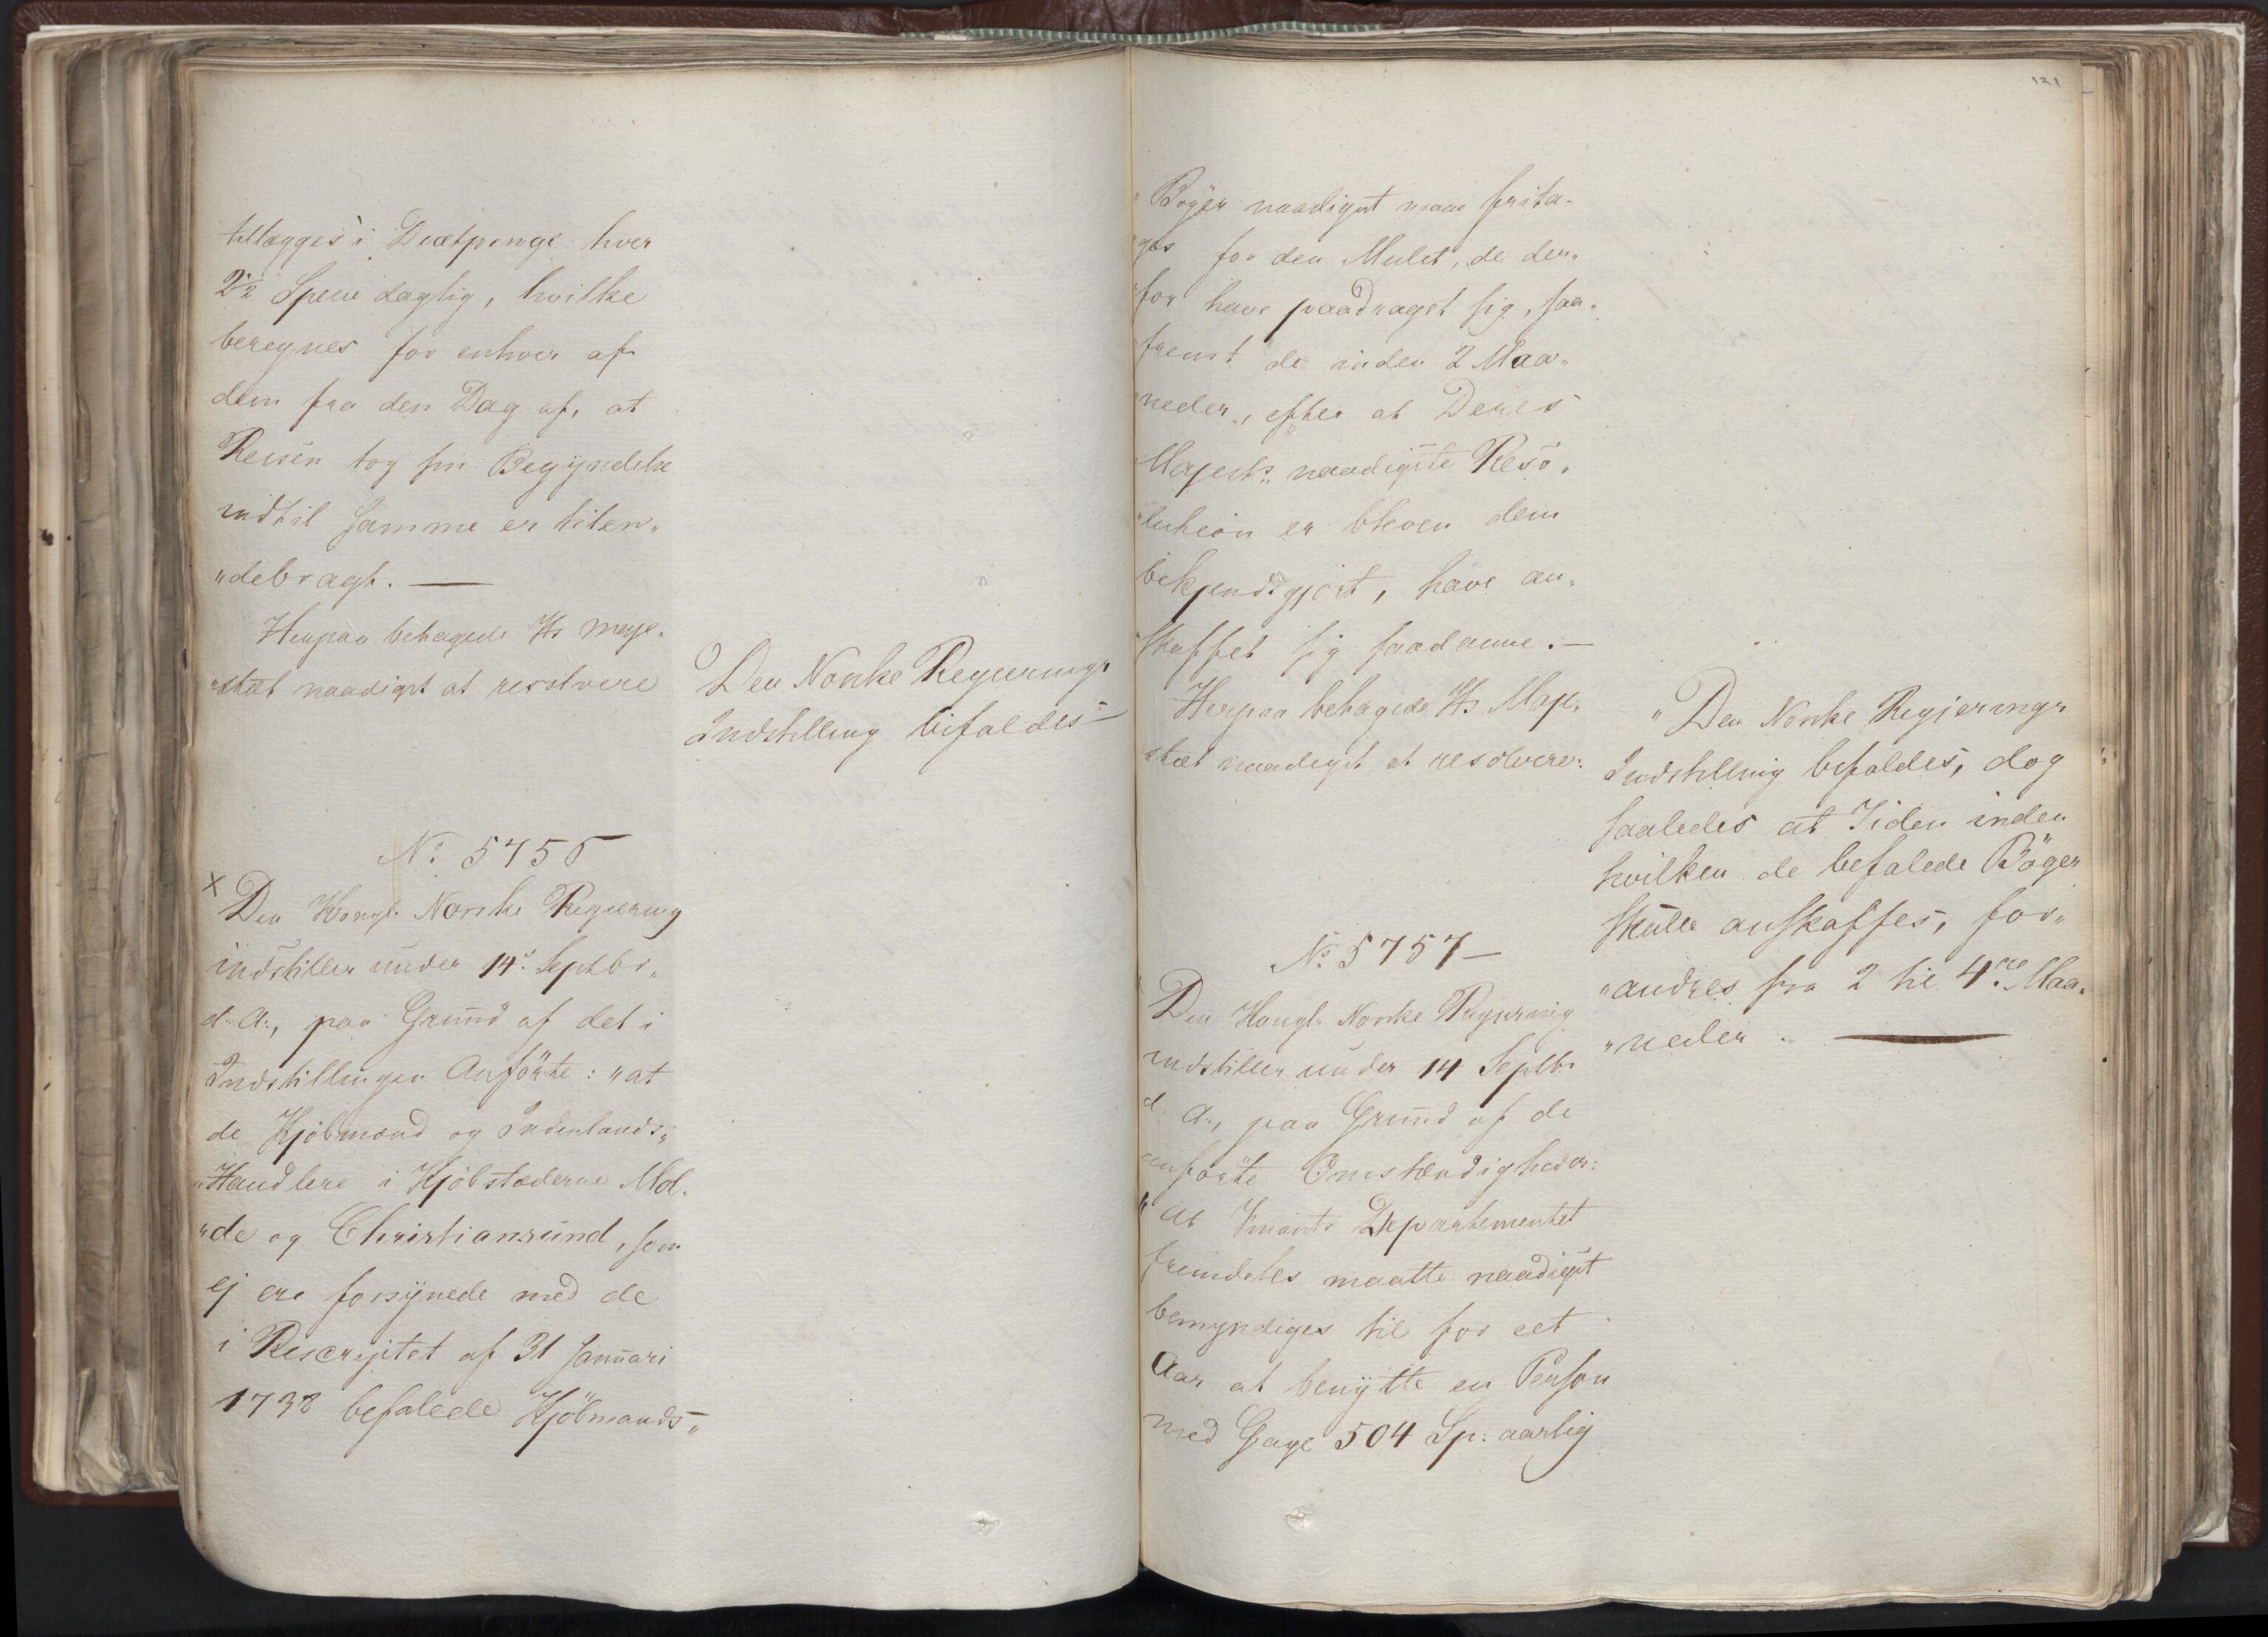 tillægges i Diætpenge hver
2 1/2 Specie daglig, hvilke
beregnes for enhver af
dem fra den Dag af, at
Reisen tog sin Begÿndelse
indtil samme er tilen„
„debragt. —
Herpaa behagede Hs Maje„
„stæt naadigst at resolvere
Den Norske Regjerings
Indstilling bifaldes —
No 5756
x Den Kongl. Norske Regjering
indstiller under 14de Septbr.
d. A., paa Grund af det i
Indstillingen Anførte: „at
de Kjøbmænd og Indenlands„
„Handlere i Kjøbstæderne Mol„
„de og Christiansund, som
ej ere forsÿnede med de
i Rescriptet af 31 Januari
1738 befalede Kjøbmands„
121
„Bøger naadigst maae frita„
„ges for den Mulct, de der„
„for have paadraget sig, saa„
„fremt de inden 2 Maa„
„neder, efter at Deres
Majests. naadigste Reso„
„lution er bleven dem
bekjendtgjort, have an„
„skaffet sig saadanne. —
Herpaa behagede Hs Maje„
stæt naadigst at resolvere:
„Den Norske Regjerings
Indstilling bifaldes, dog
saaledes at Tiden inden
hvilken de befalede Bøger
skulle anskaffes, for„
„andres fra 2 til 4re Maa„
„neder. —
No 5757 —
Den Kongl. Norske Regjering
indstiller under 14 Septbr
d. A., paa Grund af de
anførte Omstændigheder:
„at Finants Departementet
fremdeles maatte naadigst
bemyndiges til for eet
Aar at benÿtte en Person
med Gage 504 Sp: aarlig